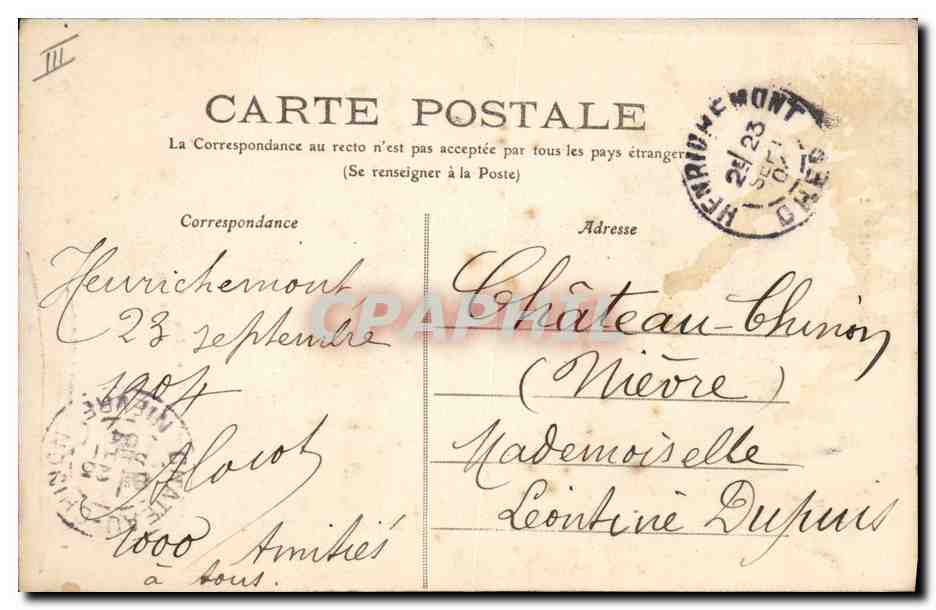 III
CARTE POSTALE
La Correspondance au recto n'est pas acceptée par tous les pays étrangers
(Se renseigner à la Poste)
HENRICHEMONT
CHER
2E
23
SEPT
04
Correspondance
Adresse
Henrichemont
23 septembre
1904
1000 Amitiés
à tous.
Château-Chinon
(Nièvre)
Mademoiselle
Léontine Dupuis
CHATEAU CHINON
NIEVRE
CPAPHIL